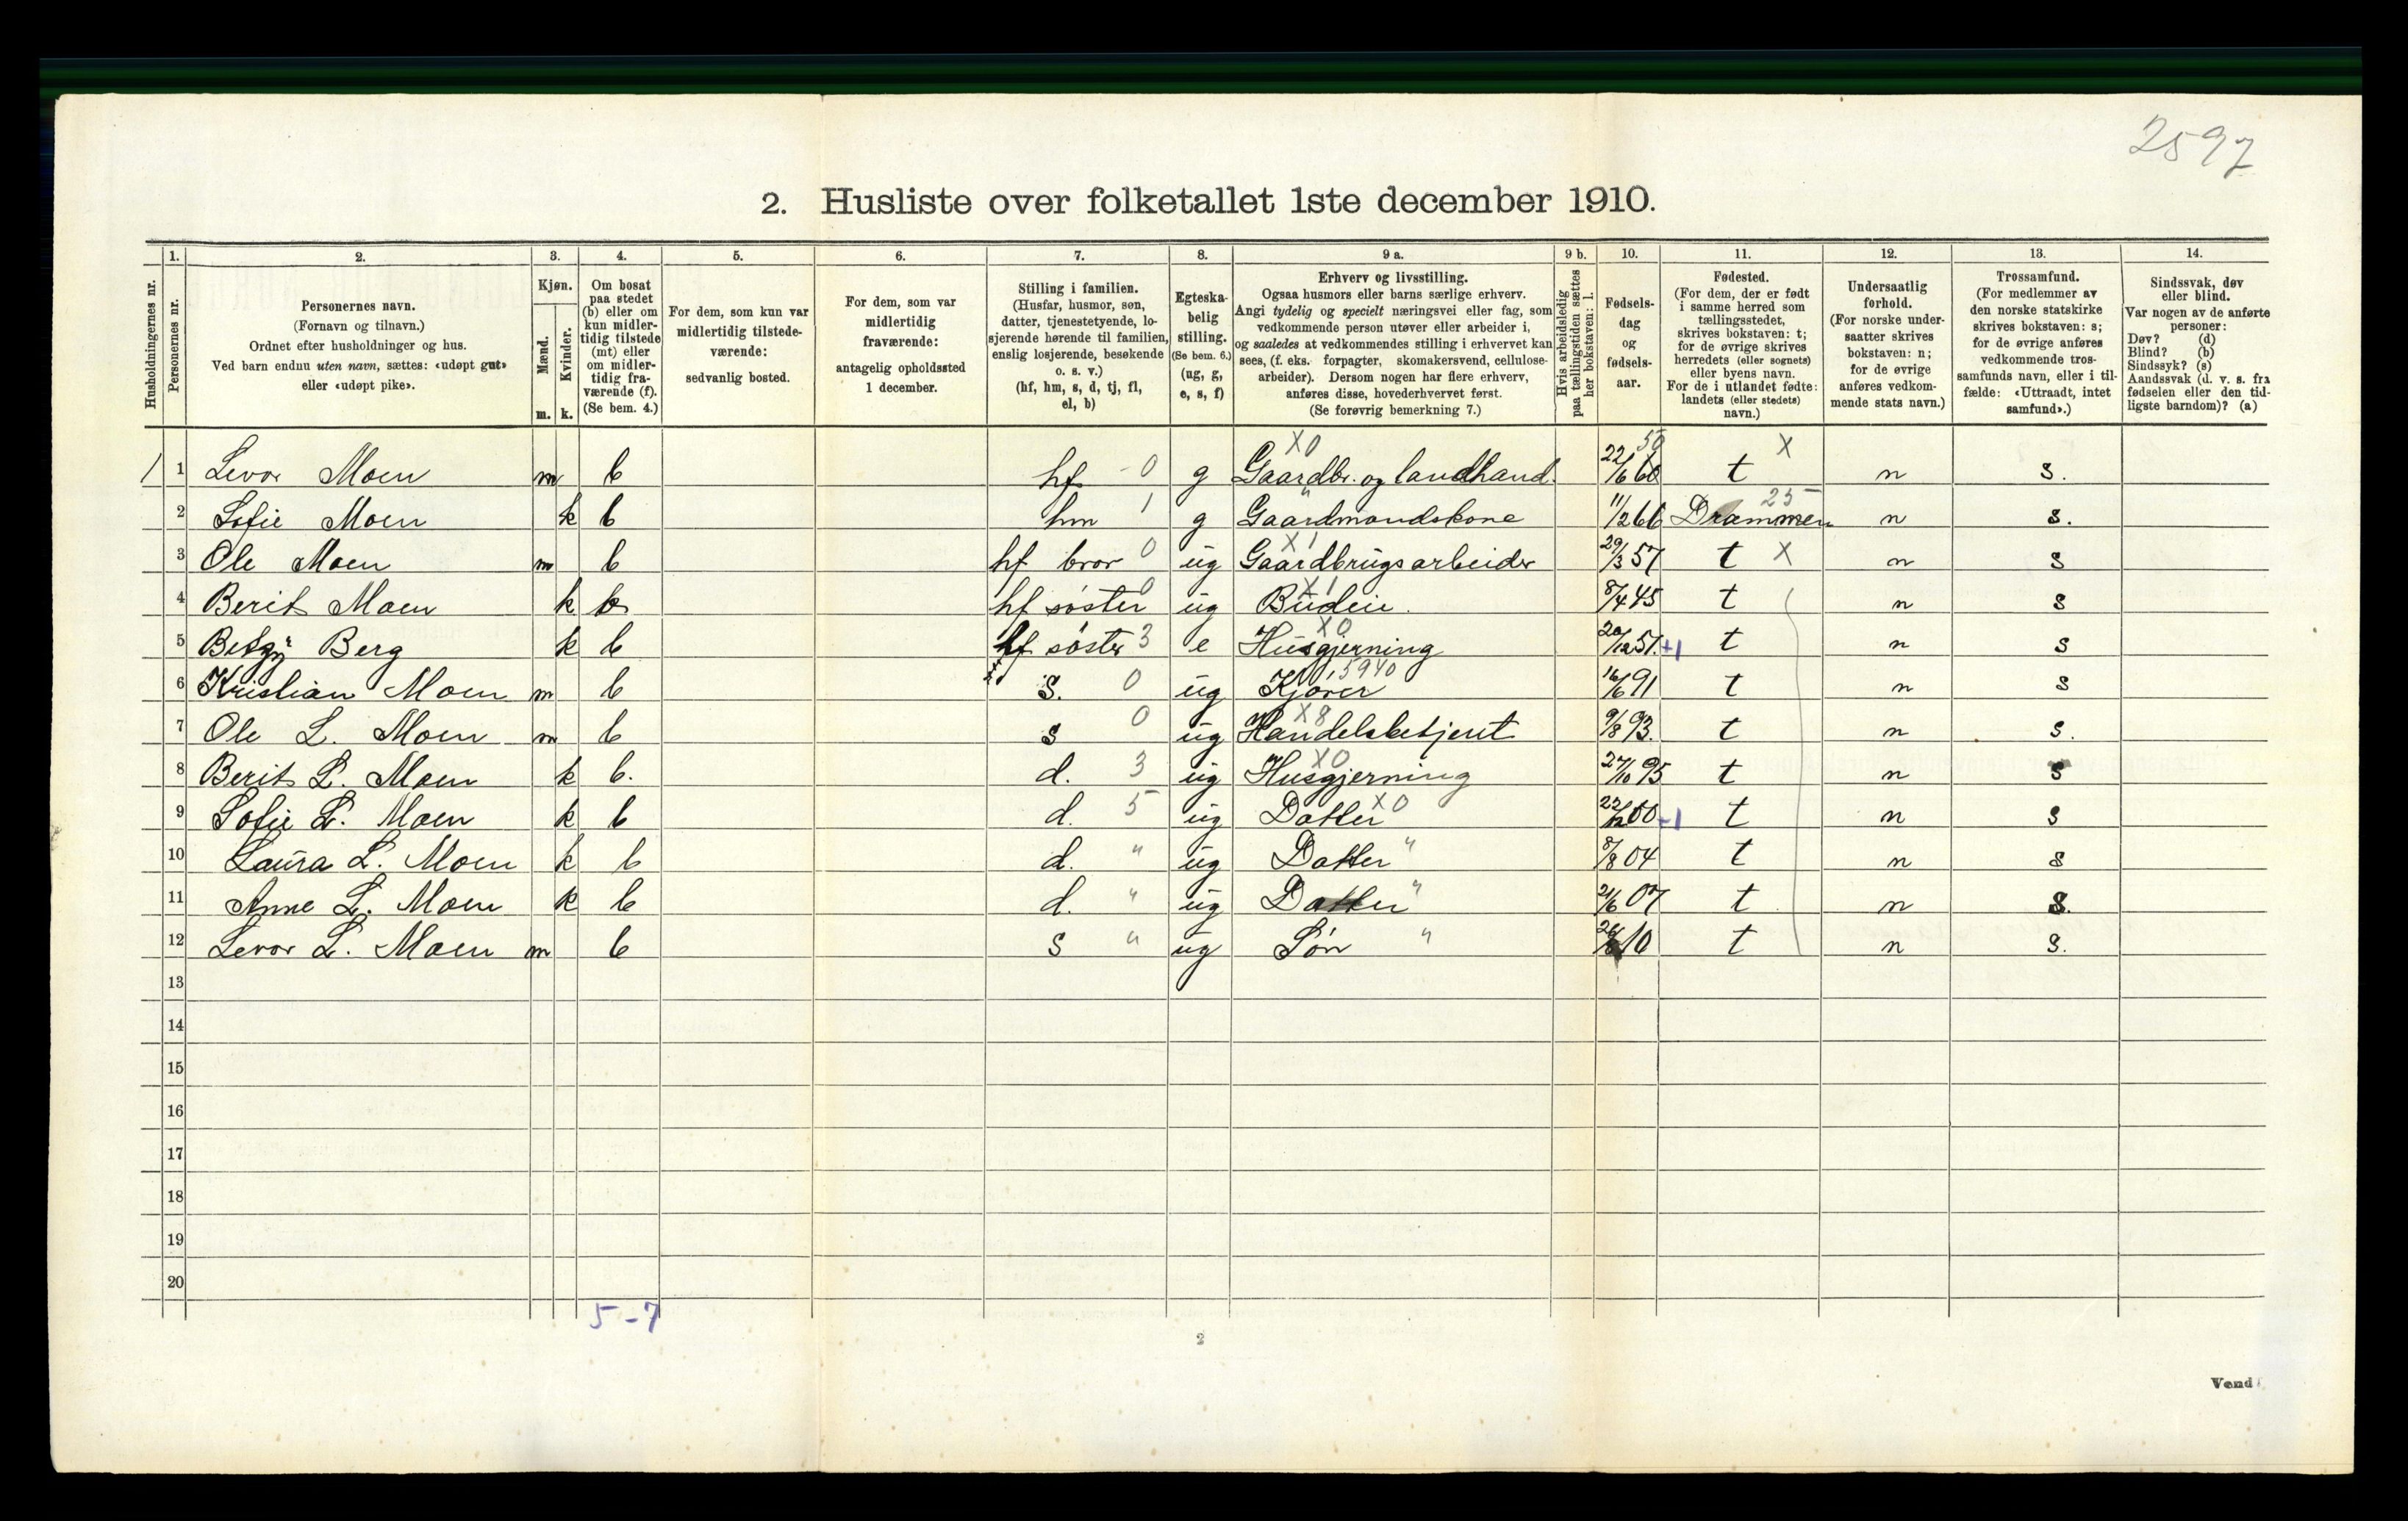 2597
2. Husliste over folketallet 1ste december 1910.
Husholdningernes nr.
1.
Personernes nr.
2.
Personernes navn.
(Fornavn og tilnavn.)
Ordnet efter husholdninger og hus.
Ved barn endnu uten navn, sættes: «udøpt gut»
eller «udøpt pike».
3.
Kjøn.
Mænd.
Kvinder.
m. k.
4.
Om bosat
paa stedet
(b) eller om
kun midler-
tidig tilstede
(mt) eller
om midler-
tidig fra-
værende (f).
(Se bem. 4.)
5.
For dem, som kun var
midlertidig tilstede-
værende:
sedvanlig bosted.
6.
For dem, som var
midlertidig
fraværende:
antagelig opholdssted
1 december.
7.
Stilling i familien.
(Husfar, husmor, søn,
datter, tjenestetyende, lo-
sjerende hørende til familien,
enslig losjerende, besøkende
o. s. v.)
(hf, hm, s, d, tj, fl,
el, b)
8.
Egteska-
belig
stilling.
(Se bem. 6.)
(ug, g,
e, s, f)
9 a.
Erhverv og livsstilling.
Ogsaa husmors eller barns særlige erhverv.
Angi tydelig og specielt næringsvei eller fag, som
vedkommende person utøver eller arbeider i,
og saaledes at vedkommendes stilling i erhvervet kan
sees, (f. eks. forpagter, skomakersvend, cellulose-
arbeider). Dersom nogen har flere erhverv,
anføres disse, hovederhvervet først.
(Se forøvrig bemerkning 7.)
9 b.
Hvis arbeidsledig
paa tællingstiden sættes
her bokstaven: l.
10.
Fødsels-
dag
og
fødsels-
aar.
11.
Fødested.
(For dem, der er født
i samme herred som
tællingsstedet,
skrives bokstaven: t;
for de øvrige skrives
herredets (eller sognets)
eller byens navn.
For de i utlandet fødte:
landets (eller stedets)
navn.)
12.
Undersaatlig
forhold.
(For norske under-
saatter skrives
bokstaven: n;
for de øvrige
anføres vedkom-
mende stats navn.)
13.
Trossamfund.
(For medlemmer av
den norske statskirke
skrives bokstaven: s;
for de øvrige anføres
vedkommende tros-
samfunds navn, eller i til-
fælde: «Uttraadt, intet
samfund».)
14.
Sindssvak, døv
eller blind.
Var nogen av de anførte
personer:
Døv? (d)
Blind? (b)
Sindssyk? (s)
Aandssvak (d. v. s. fra
fødselen eller den tid-
ligste barndom)? (a)
X0 50 X
1 1 Levor Moen m b hf - 0 g Gaardbr. og landhand. 22/6 60 t n s.
2 Sofie Moen k b hm 1 g " Gaardmandskone 11/2 66 Drammen 25 n s.
3 Ole Moen m b hf bror 0 ug X1 Gaardbrugsarbeider 29/3 57 t X n s
4 Berit Moen k b hf søster 0 ug X1 Budeie. 8/4 45 t n s
5 Betzy Berg k b hf søster 3 e X0 Husgjerning 20/12 51. +1 t n s
6 Kristian Moen m b s. 0 ug 5940 Kjører 16/6 91 t n s
7 Ole L. Moen m b s 0 ug X8 Handelsbetjent 9/8 93. t n s.
8 Berit L. Moen k b. d. 3 ug X0 Husgjerning 27/10 95 t n s
9 Sofie L. Moen k b d. 5 ug Datter X0 22/12 00 -1 t n s
10 Laura L. Moen k b d. " ug Datter " 8/8 04 t n s
11 Anne L. Moen k b d. " ug Datter " 21/6 07 t n s.
12 Levor L. Moen m b s " ug Søn " 10 t n s.
13
14
15
16
17
18
19
20
5 - 7
2
Vend